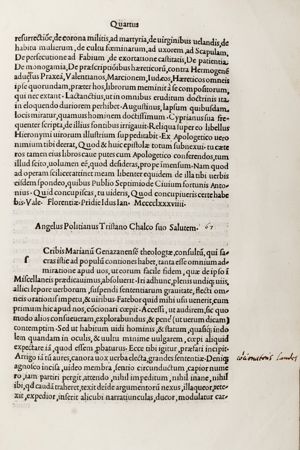 Quartus
resurrectiõe, de corona militis, ad martyria, de uirginibus uelandis, de
habitu mulierum, de cultu fœminarum, ad uxorem, ad Scapulam,
De persecutione ad Fabium, de exortatione castitatis, De patientia,
De monogamia, De præscriptiõibus hæreticorũ, contra Hermogenẽ
aduersus Praxeã, Valentianos, Marcionem, Iudæos, Hæreticos omneis
ipse quorundam, præter hos, librorum memini à se compositorum,
qui nec extant. Lactantius, ut in omnibus eruditum doctrinis ita
in eloquendo duriorem perhibet. Augustinus, lapsum quibusdam
locis miratur, quamuis hominem doctissimum. Cyprianus sua fre
quenter scripta, de illius fontibus irrigauit. Reliqua super eo libellus
Hieronymi uirorum illustrium suppeditabit. Ex Apologetico uero
nomini tibi dederat, Quod & huic epistolæ totum subnexui. tu cæte
ros tamen eius libros caue putes cum Apologetico conferendos, tum
illud scito, uolumen eẽ, quod desideras, prope immensum. Nam quod
ad operam scilicet attinet meam libenter equidem de illa tibi uerbis
eisdem spondeo, quibus Publio Septimio de Ciuium fortunis Anto-
nius. Quod concupiscas, tu uideris, Quod concupiueris certe habe
bis. Vale. Florentiæ. Pridie Idus Ian. Mcccclxxxviiii.
Angelus Politianus Tristano Chalco suo Salutem. 67
f Cribis Marianũ Genazanensẽ theologũ, consultũ, qui sa
cras istic ad populũ contiones habet, tanta esse omnium ad
miratione apud uos, ut eorum facile fidem, quæ de ipso ĩ
Miscellaneis prædicauimus, absoluerit. Iri adhunc, plenis undiq; uiis,
allici lepore uerborum, suspendi sententiarum grauitate, flecti om-
neis orationis impetu, & uiribus. Fatebor quid mihi usi uenerit, cum
primum hic apud nos, cõcionari cœpit. Accessi, ut audirem, sic quo
modo alios consueueram, explorabundus, & penẽ (ut uerum dicam)
contemptim. Sed ut habitum uidi hominis, & statum, quasiq; indo
lem quandam in oculis, & uultu minime uulgarem, cœpi aliquid
expectare iã, quod essem ꝓbaturus. Ecce tibi igitur, præfari incipit.
Arrigo iã tũ aures, canora uox uerba electa, grandes sententiæ. Deniq;
agnosco incisa, uideo membra, sentio circunductum, capior nume
ro, iam partiri pergit, attendo, nihil impeditum, nihil inane, nihil
ibi, qđ caudã traheret, texit deide argumentorũ nexus, illaqueor, rete-
xit, expedior, inserit alicubi narratiunculas, ducor, modulatur car-